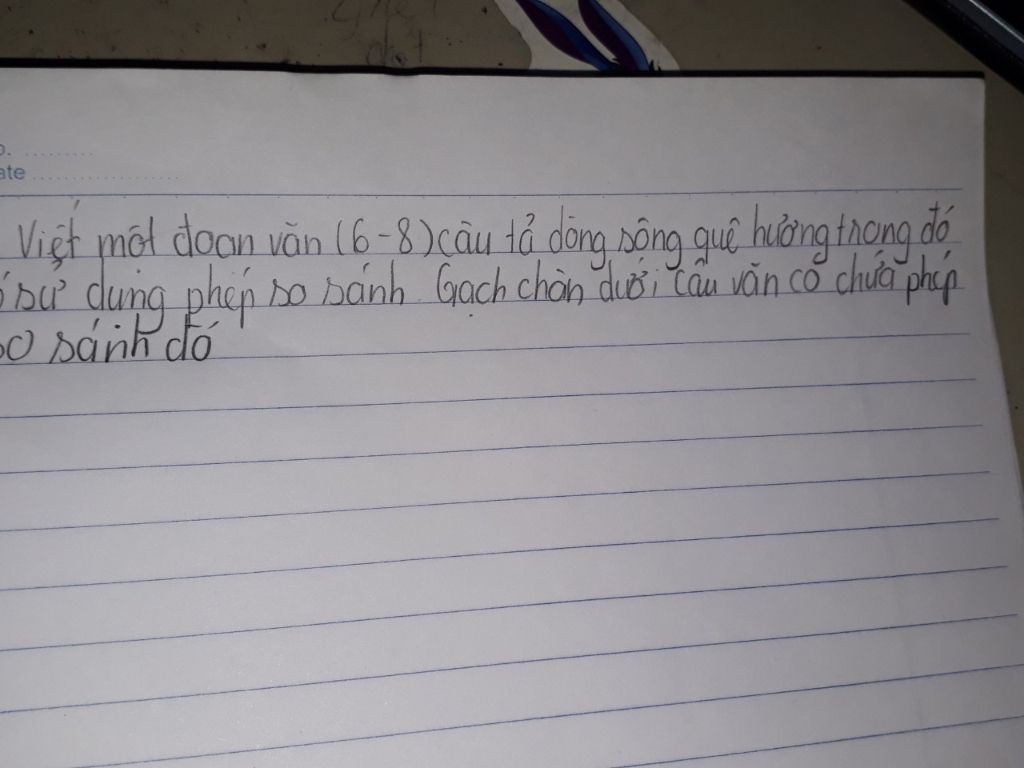 ate
Viết một đoạn văn (6-8) câu tả dòng sông quê hương trong đó
sử dụng phép so sánh. Gạch chân dưới câu văn có chứa phép
so sánh đó